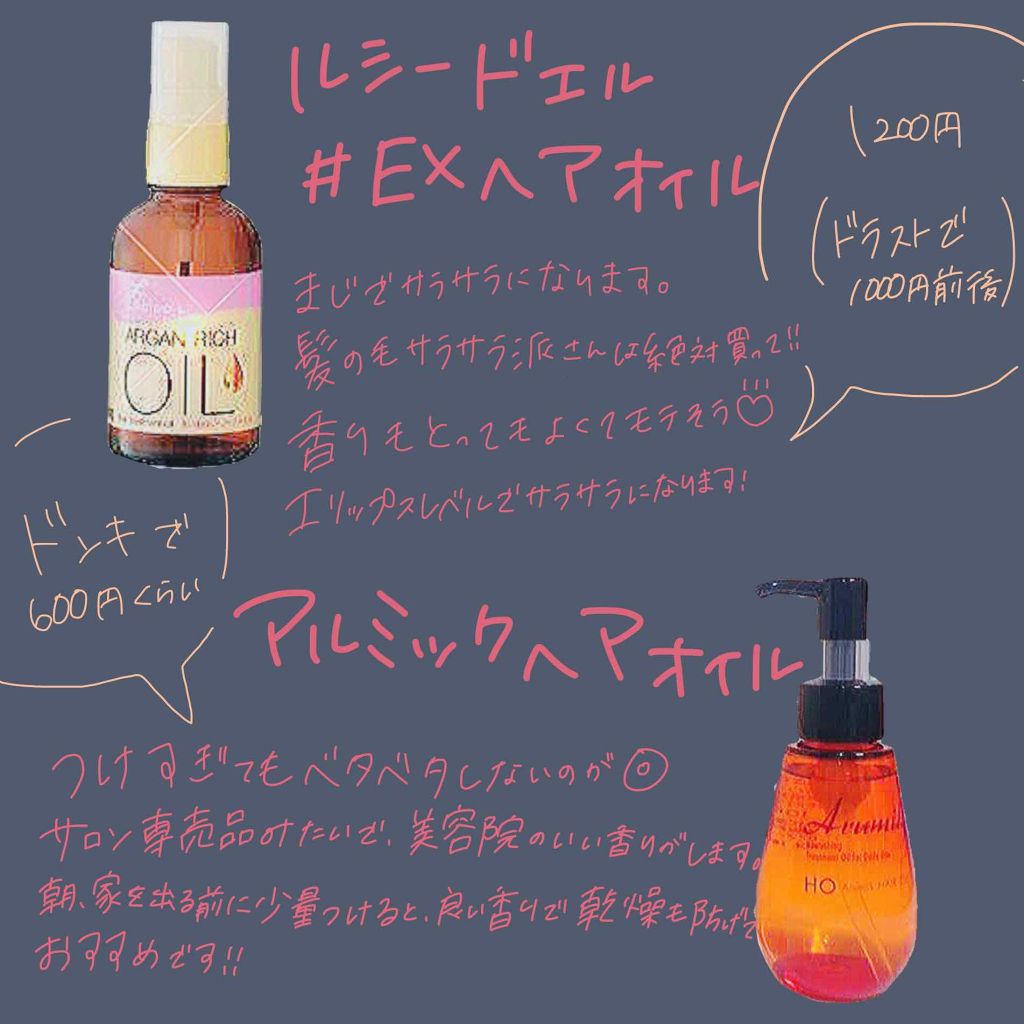 ルシードエル
#EXヘアオイル
1200円
(ドラストで
1000円前後)
まじでサラサラになります。
髪の毛サラサラ派さんは絶対買って!!
香りもとってもよくてモテそう
エリップスレベルでサラサラになります!
ARGAN RICH
OIL
ドンキで
600円くらい
アルミックヘアオイル
つけすぎてもベタベタしないのが◎
サロン専売品みたいで、美容院のいい香りがします。
朝、家を出る前に少量つけると、良い香りで乾燥も防げて
おすすめです!!
Arumi
HO